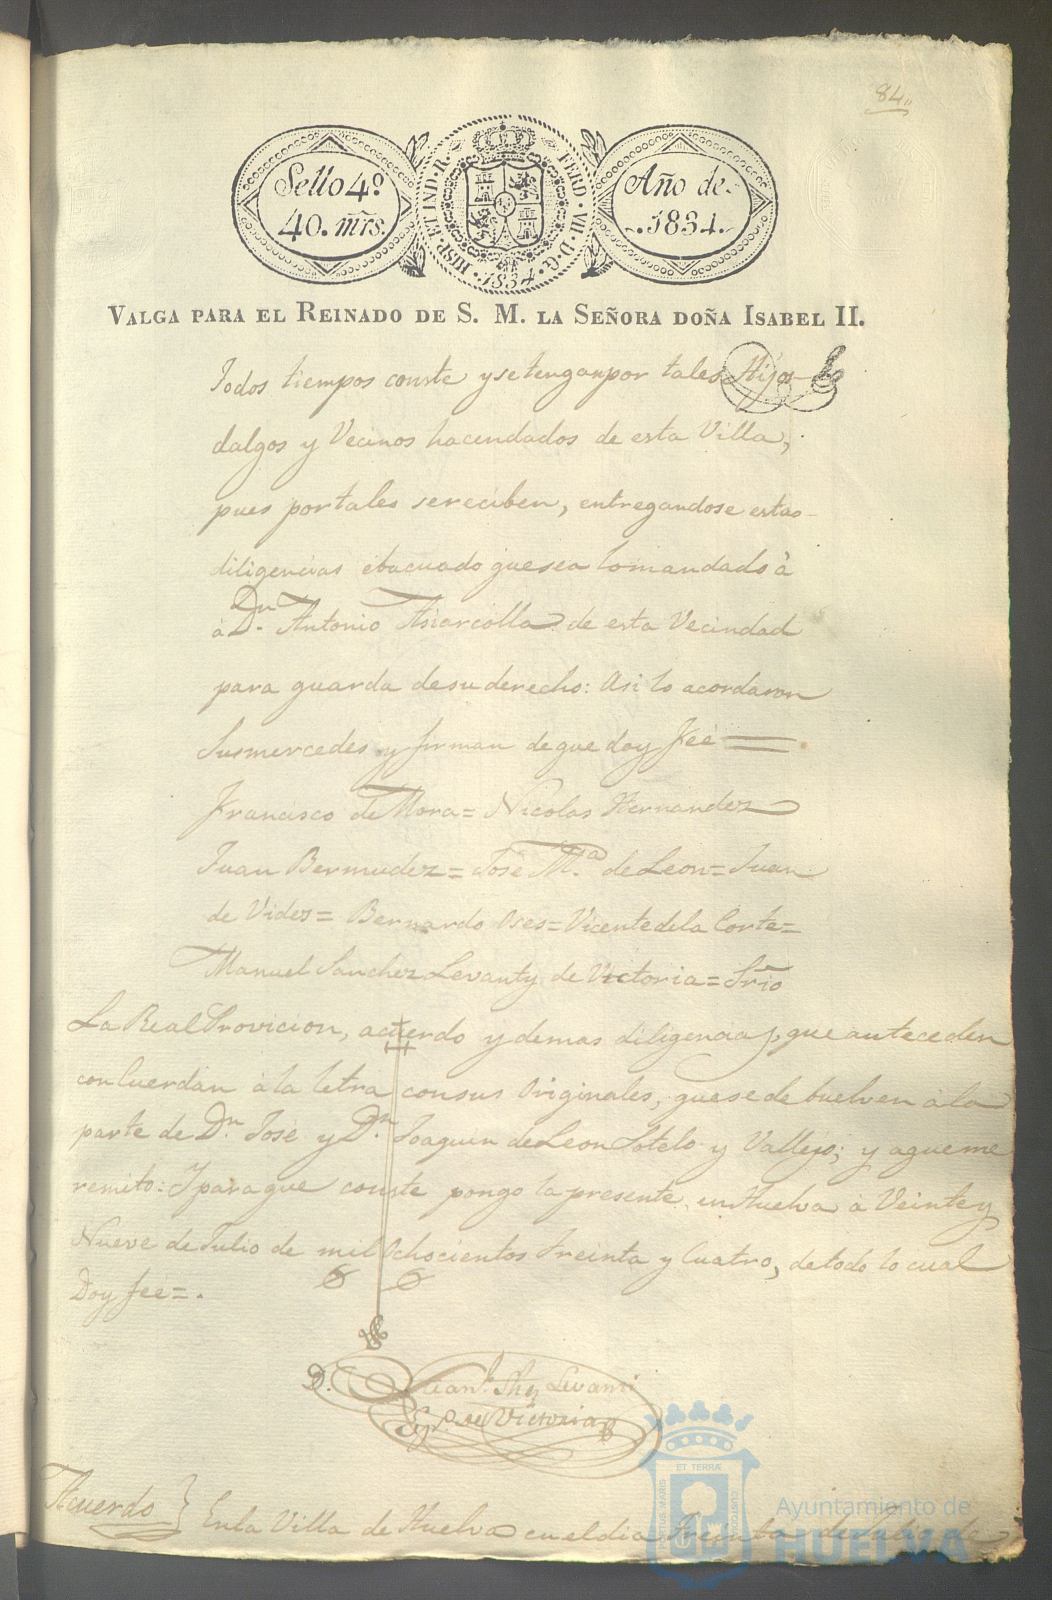 84,,
Sello 4º
40. mrs.
HISP. ET IND. R. FERD. VII. D. G. 1834.
Año de
1834.
VALGA PARA EL REINADO DE S. M. LA SEÑORA DOÑA ISABEL II.
Todos tiempos conste y se tengan por tales Hijos
dalgos y Vecinos hacendados de esta Villa,
pues por tales se reciben, entregandose estas
diligencias ebacuado que sea lo mandado à
à Dn. Antonio de esta Vecindad
para guarda de su derecho: Asi lo acordaron
Susmercedes y firman de que doy Feé =
Francisco de Mora = Nicolas Hernandez
Juan Bermudez = José Ma. de Leon = Juan
de Vides = Bernardo Oses = Vicente de la Corte =
Manuel Sanchez Levanty de Victoria = Srio
La Real Provicion, acuerdo y demas diligencias, que anteceden
concuerdan à la letra con sus Originales, que se debuelven à la
parte de Dn. José y Dn. Joaquin de Leon Sotelo y Vallejo; y a que me
remito: Y para que conste pongo la presente en Huelva à Veinte y
Nueve de Julio de mil Ochocientos Treinta y Cuatro, de todo lo cual
Doy feé =.
D. Levanti
de Victoria
Acuerdo } En la Villa de Huelva en el dia Treinta de Julio de
PORTUS MARIS ET TERRÆ CUSTODIA
Ayuntamiento de
HUELVA